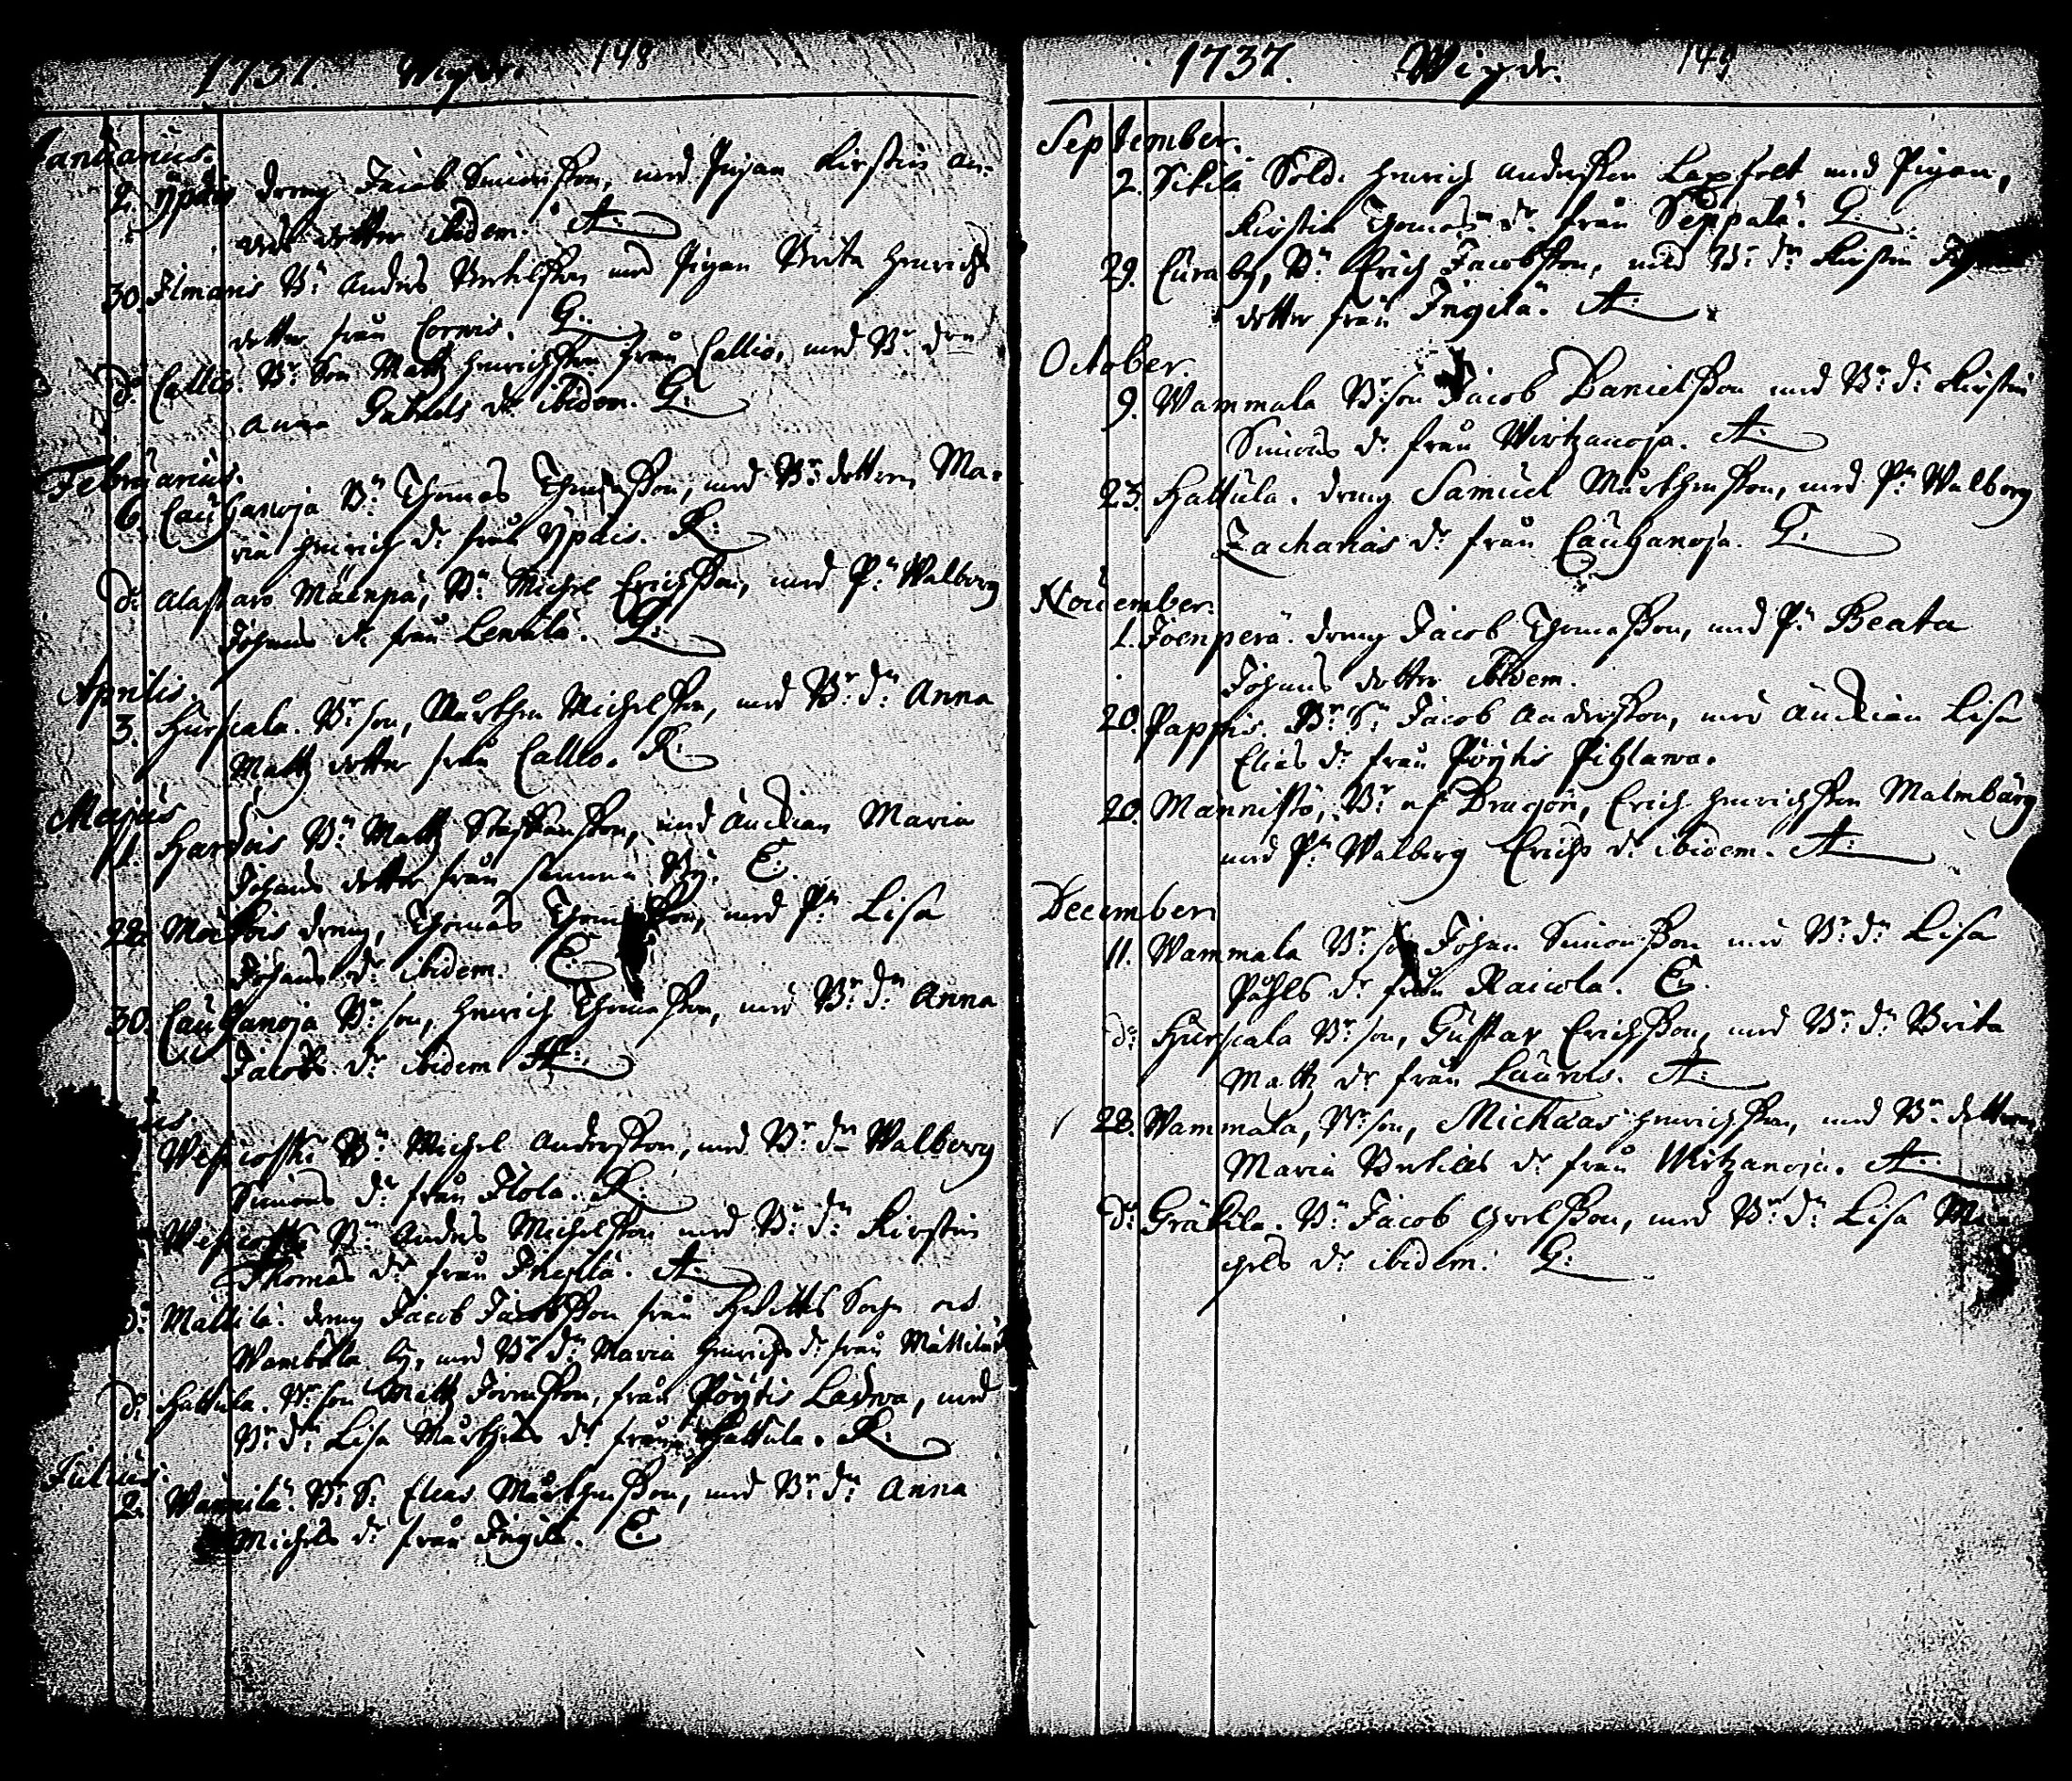 1737. Wigde. 148
Januarius.
2. Ypäis dreng Jacob Simonsson, med Pigan Kirstin An-
ders dotter ibidem. A:
30. Ilmaris Bn: Anders Bertilsson med Pigan Brita Henrichs
dotter från Corwis. G:
do: Callis. Br: Son Matz Henrichsson från Callio, med Br: dren
Anna Gabriels dr: ibidem. G:
Februarius.
6. Cauhanoja Bn: Thomas Thomasson, med Br: dottren Ma-
ria Henrichs dr: från Ypäis. K:
do: Alastaro Mäenpä, Bn: Michel Erichsson, med Pn: Walborg
Johans dr från Lewälä. G:
Aprilis.
3. Hurscala. Br: son, Mårthen Michelsson, med Br: dn: Anna
Matz dotter från Callio. K:
Majus
1. Hardois Bn: Matz Staffansson, med Änckian Maria
Johans dotter från samma By. C.
22. Moisois dreng, Thomas Thomasson, med Pn: Lisa
Johans dr: ibidem. C:
30. Cauhanoja Br: son, Henrich Thomasson, med Br: dn: Anna
Jacobs dr: ibidem A:
ius.
Wesicoski Bn: Michel Andersson, med Br: dn: Walborg
Simons dr: från Ilola. K:
Wesicoski Bn: Anders Michelsson med Br: dn: Kirstin
Thomas dr: från Ingilä. A:
do: Mattila: dreng Jacob Jacobsson från Hvittis Sochn och
Wambula by, med Br: dn: Maria Henrichs dr: från Mattila
do: Hattula. Br: son Matz Jöransson, från Pöytis Ladwa, med
Br: dn: Lisa Mårthens dr: från Hattula. K:
Julius.
2. Wännilä. Br: S: Elias Mårthensson, med Br: dn: Anna
Michels dr: från Ingilä. C:
1737. Wigde. 149
September.
2. Sikilä Sold. Henrich Andersson Laxfelt med Pigan,
Kirstin Thomas dr: från Seppälä. G.
29. Euraby, Bn: Erich Jacobsson, med Br: dn: Kirstin
dotter från Ingilä. A:
October.
9. Wammala Br: son Jacob Danielsson med Br: dn: Kirstin
Simons dr: från Wirtzanoja. A:
23. Hattula. dreng Samuel Mårthensson, med Pn: Walborg
Zacharias dr: från Cauhanoja. G.
November.
1. Joenperä. dreng Jacob Thomasson, med Pn: Beata
Johans dotter ibidem.
20. Pappis. Br: Sn: Jacob Andersson, med Änckian Lisa
Elias dr: från Pöytis Pihlawa.
20. Männistö, Br: af Dragon, Erich Henrichsson Malmbärg
med Pn: Walborg Erichs dr: ibidem. A:
December
11. Wammala Br: son Johan Simonsson med Br: dn: Lisa
Påhls dr: från Raicola. C.
do: Hurscala Br: son, Gustav Erichsson, med Br: dn: Brita
Matz dr: från Laurois. A:
28. Wammala, Br: son, Michaas Henrichsson, med Br: dottren
Maria Bertils dr: från Wirtzanoja. A:
do: Gräkilä. Bn: Jacob Grelsson, med Br: dn: Lisa Mi-
chels dr: ibidem. G: